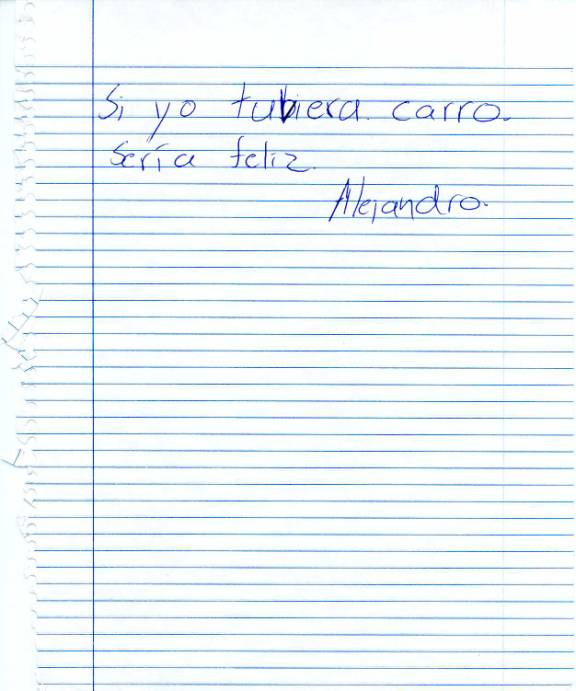 Si yo tubiera. carro.
Sería feliz.
Alejandro.